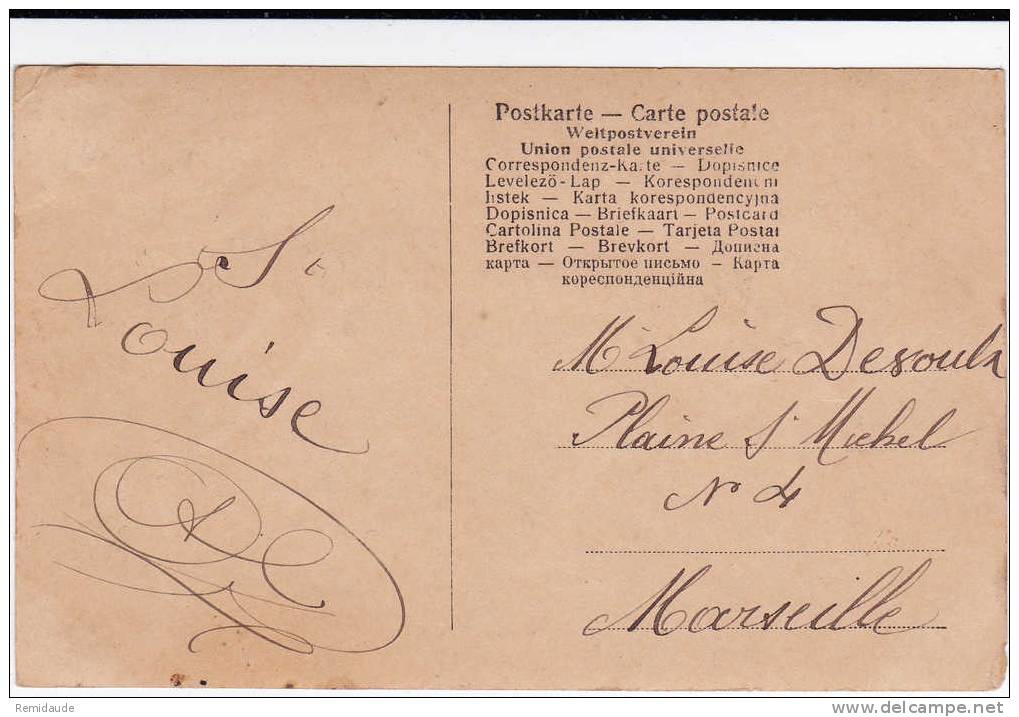 Postkarte — Carte postale
Weltpostverein
Union postale universelle
Correspondenz-Karte — Dopisnice
Levelezö-Lap — Korespondentni
listek — Karta korespondencyjna
Dopisnica — Briefkaart — Postcard
Cartolina Postale — Tarjeta Postal
Brefkort — Brevkort — Дописна
карта — Открытое письмо — Карта
кореспонденційна
Ste
Louise
Mlle Louise
Plaine St Michel
No 4
Marseille
Remidaude
http://www.delcampe.net